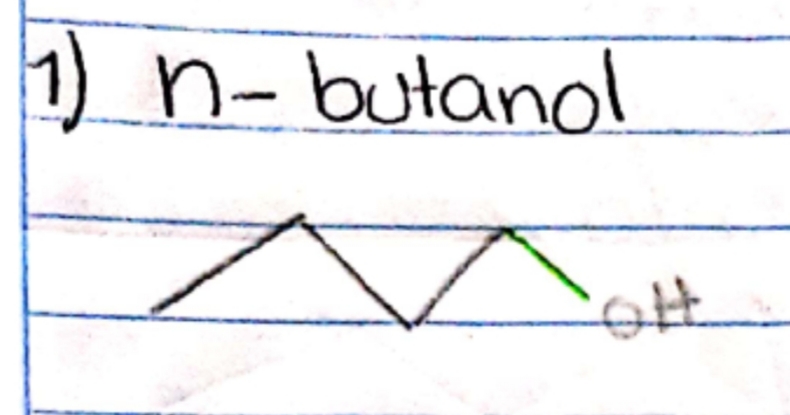 1) n- butanol
OH